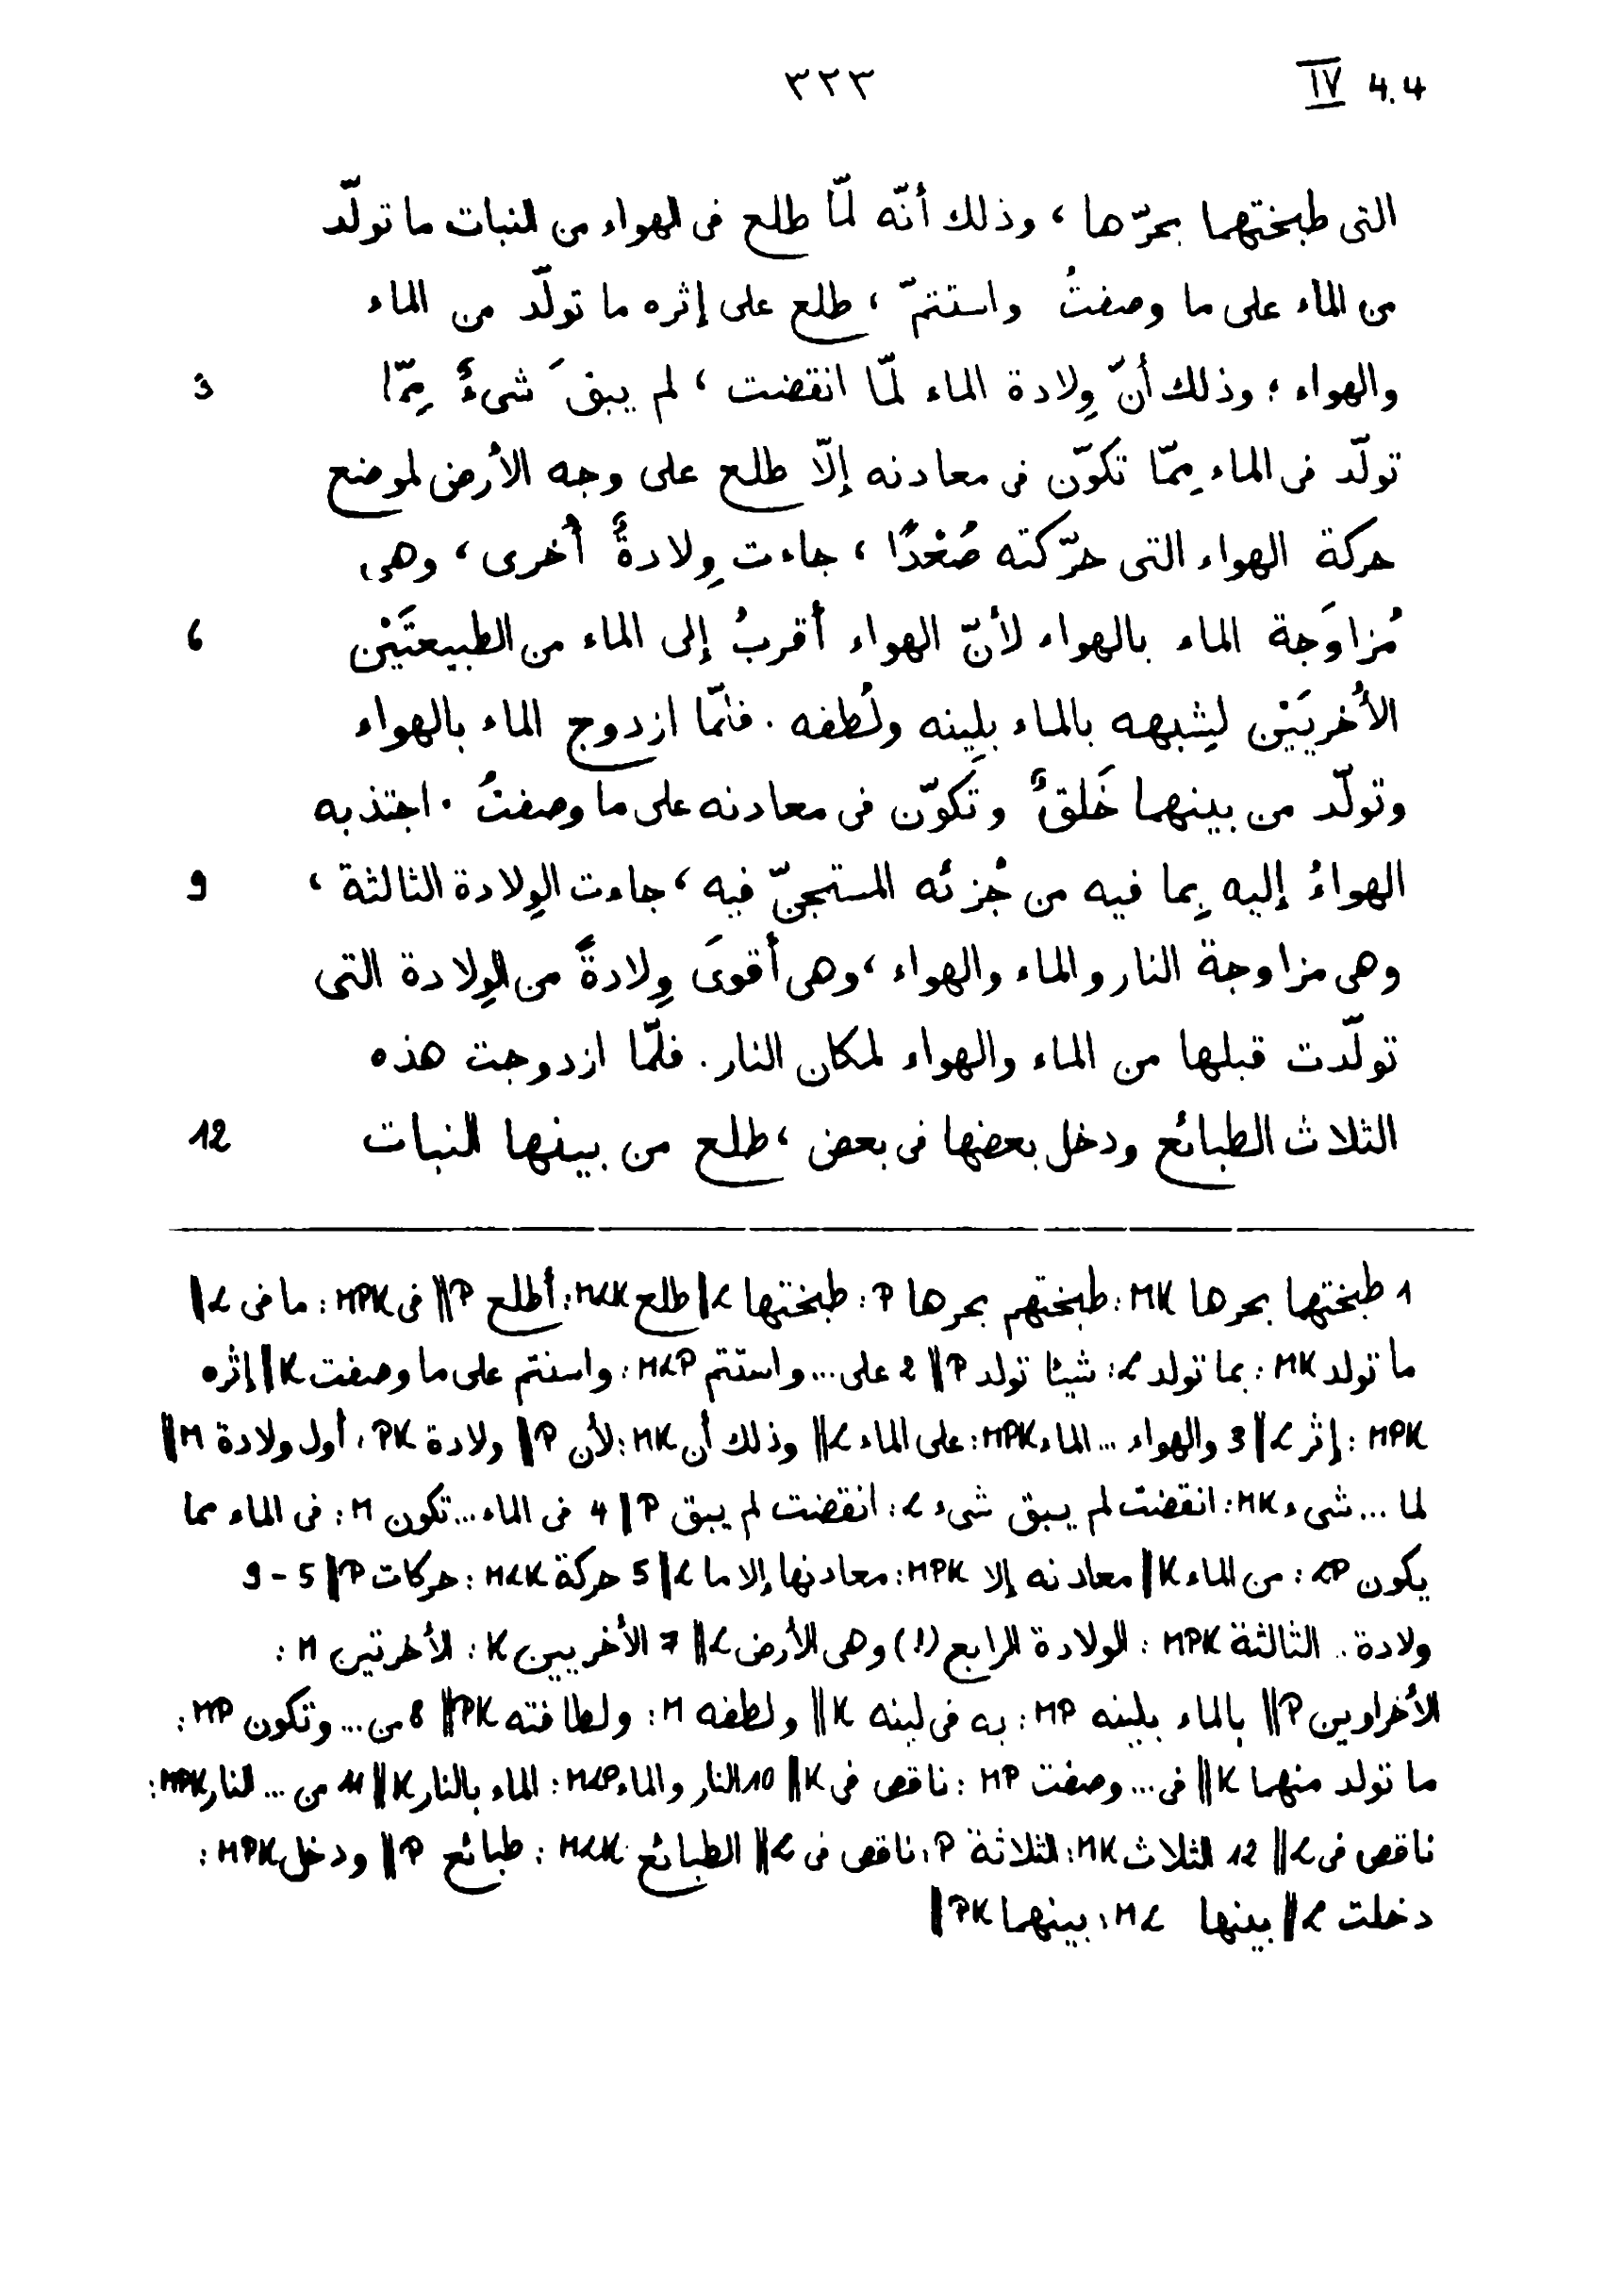 IV 4.4
٣٢٣
التى طبختهما بحرّها ، وذلك أنّه لمّا طلع فى الهواء من النبات ما تولّد
من الماء على ما وصفتُ واستتمّ ، طلع على إثره ما تولّد من الماء
والهواء ؛ وذلك أنّ وِلادة الماء لمّا انقضت ، لم يبقَ شىءٌ مِمّا 3
تولّد فى الماء مِمّا تكوّن فى معادنه إلّا طلع على وجه الأرض لموضع
حركة الهواء التى حرّكته صُعْدًا ، جاءت وِلادةٌ أُخرى ، وهى
مُزاوَجة الماء بالهواء لأنّ الهواء أقربُ إلى الماء من الطبيعتَيْن 6
الأُخريَيْن لِشبهه بالماء بلِينه ولُطفه . فلمّا ازدوج الماء بالهواء
وتولّد من بينهما خَلقٌ وتكوّن فى معادنه على ما وصفتُ . اجتذبه
الهواءُ إليه بِما فيه من جُزئه المستجنّ فيه ، جاءت الوِلادة الثالثة ، 9
وهى مزاوجة النار والماء والهواء ، وهى أقوىَ وِلادةً من الوِلادة التى
تولّدت قبلها من الماء والهواء لمكان النار . فلمّا ازدوجت هذه
الثلاث الطبائع ودخل بعضها فى بعض ، طلع من بينها النبات 12
1 طبختهما بحرها MK : طبختهم بحرها P : طبختها L || طلع MLK : أطلع P || فى MPK : ما فى L ||
ما تولد MK : بما تولد L : شيئا تولد P || 2 على ... واستتم MLP : واستتم على ما وصفت K || إثره
MPK : إثر L || 3 والهواء ... الماء MPK : على الماء L || وذلك أن MK : لأن P || ولادة PK : أول ولادة M ||
لما ... شىء MK : انقضت لم يبق شىء L : انقضت لم يبق P || 4 فى الماء ... تكون M : فى الماء مما
يكون LP : من الماء K || معادنه إلا MPK : معادنها إلا ما L || 5 حركة MLK : حركات P || 5 - 9
ولادة .. الثالثة MPK : الولادة الرابع (!) وهى الأرض L || 7 الأخريين K : الأخرتين M :
الأخراوين P || بالماء بلينه MP : به فى لينه K || ولطفه M : ولطافته PK || 8 من ... وتكون MP :
ما تولد منهما K || فى ... وصفت MP : ناقص فى K || 10 النار والماء MLP : الماء بالنار K || 11 من ... النار MPK :
ناقص فى L || 12 الثلاث MK : الثلاثة P : ناقص فى L || الطبائع MLK : طبائع P || ودخل MPK :
دخلت L || بينها ML : بينهما PK ||